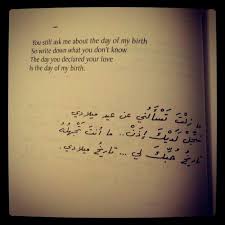 You still ask me about the day of my birth
So write down what you don't know
The day you declared your love
Is the day of my birth.
ما زلتَ تَسْألُني عن عيدِ ميلادي
سَجِّلْ لَدَيْكَ إذَنْ.. ما أنتَ تَجْهَلُهُ
تاريخُ حُبِّكَ لي ... تاريخُ ميلادي.